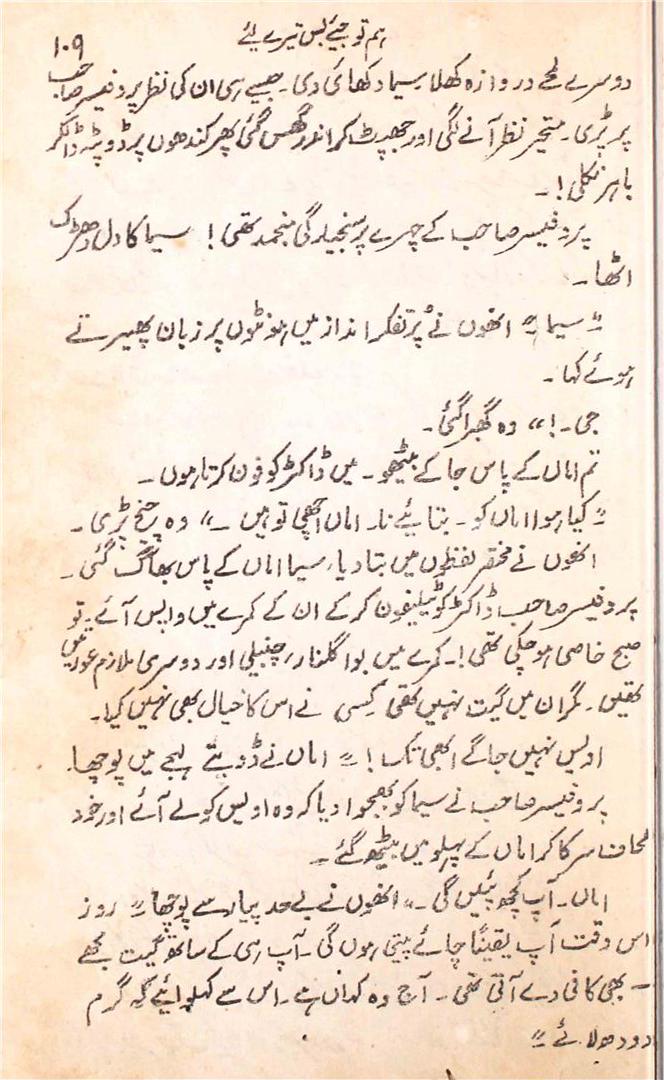 ہم تو جیئے بس تیرے لیئے
۱۰۹
دوسرے لمحے دروازہ کھلا۔ سیما دکھائی دی۔ جیسے ہی ان کی نظر پروفیسر صاحب
پر پڑی۔ متحیر نظر آنے لگی اور جھپٹ کر اندر گھس گئی پھر کندھوں پر ڈوپٹہ ڈالکر
باہر نکلی!۔
پروفیسر صاحب کے چہرے پر سنجیدگی منجمد تھی! سیما کا دل دھڑک
اٹھا۔
"سیما!" انھوں نے پُر تفکر انداز میں ہونٹوں پر زبان پھیرتے
ہوئے کہا۔
جی۔!" وہ گھبرا گئی۔
تم اماں کے پاس جا کے بیٹھو۔ میں ڈاکٹر کو فون کرتا ہوں۔
"کیا ہوا اماں کو۔ بتایئے نا۔ اماں اچھی تو ہیں۔" وہ چیخ پڑی۔
انھوں نے مختصر لفظوں میں بتا دیا، سیما اماں کے پاس بھاگ گئی۔
پروفیسر صاحب ڈاکٹر کو ٹیلیفون کر کے ان کے کمرے میں واپس آئے۔ تو
صبح خاصی ہو چکی تھی!۔ کمرے میں بوا گلنار، چنبیلی اور دوسری ملازم عورتیں
تھیں۔ مگر ان میں گیت نہیں تھی کسی نے اس کا خیال بھی نہیں کیا۔
اویس نہیں جاگے ابھی تک!" اماں نے ڈوبتے لہجے میں پوچھا۔
پروفیسر صاحب نے سیما کو بھجوا دیا کہ وہ اویس کو لے آئے اور خود
لحاف سرکا کر اماں کے پہلو میں بیٹھ گئے۔
اماں۔ آپ کچھ پئیں گی۔" انھوں نے بے حد پیار سے پوچھا" روز
اس وقت آپ یقیناً چائے پیتی ہوں گی۔ آپ ہی کے ساتھ گیت مجھے
بھی کافی دے آتی تھی۔ آج وہ کہاں ہے۔ اس سے کہلوایئے کہ گرم
دودھ لائے"